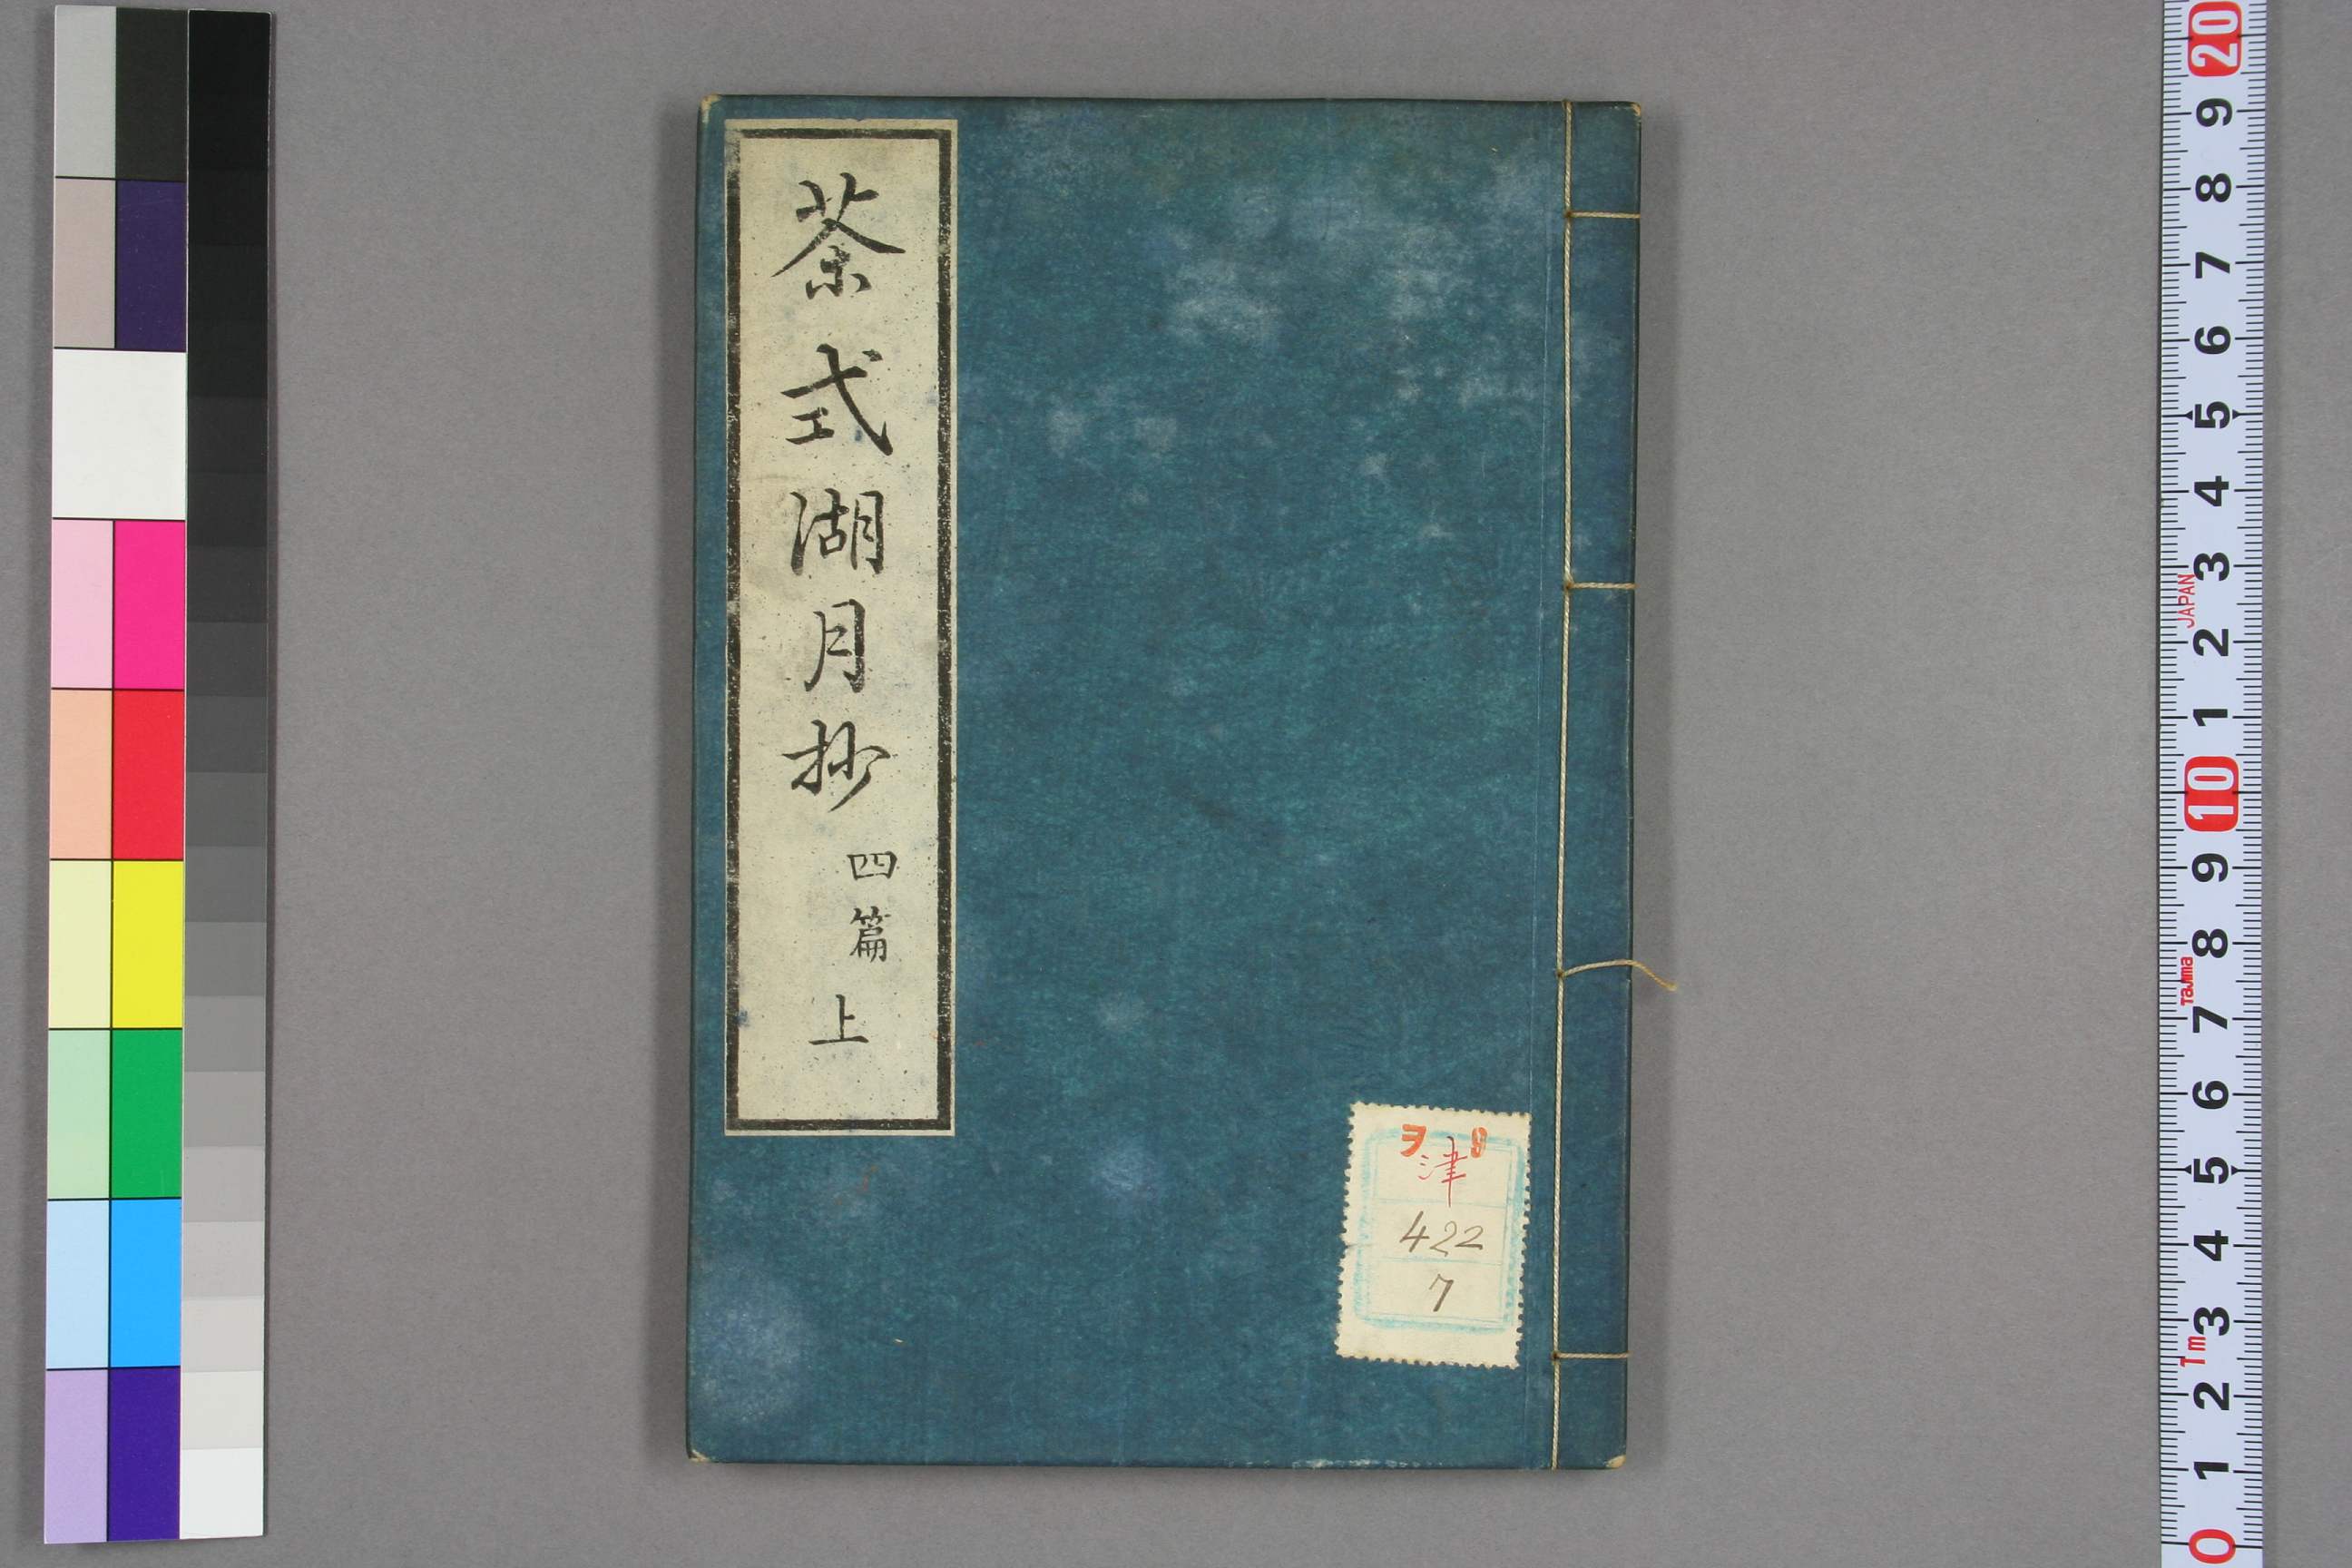 茶式湖月抄
四篇
上
ヲ
津
422
7
20
9
8
7
6
5
4
3
JAPAN
2
1
10
9
8
Tajima
7
6
5
4
3
1m
2
1
0